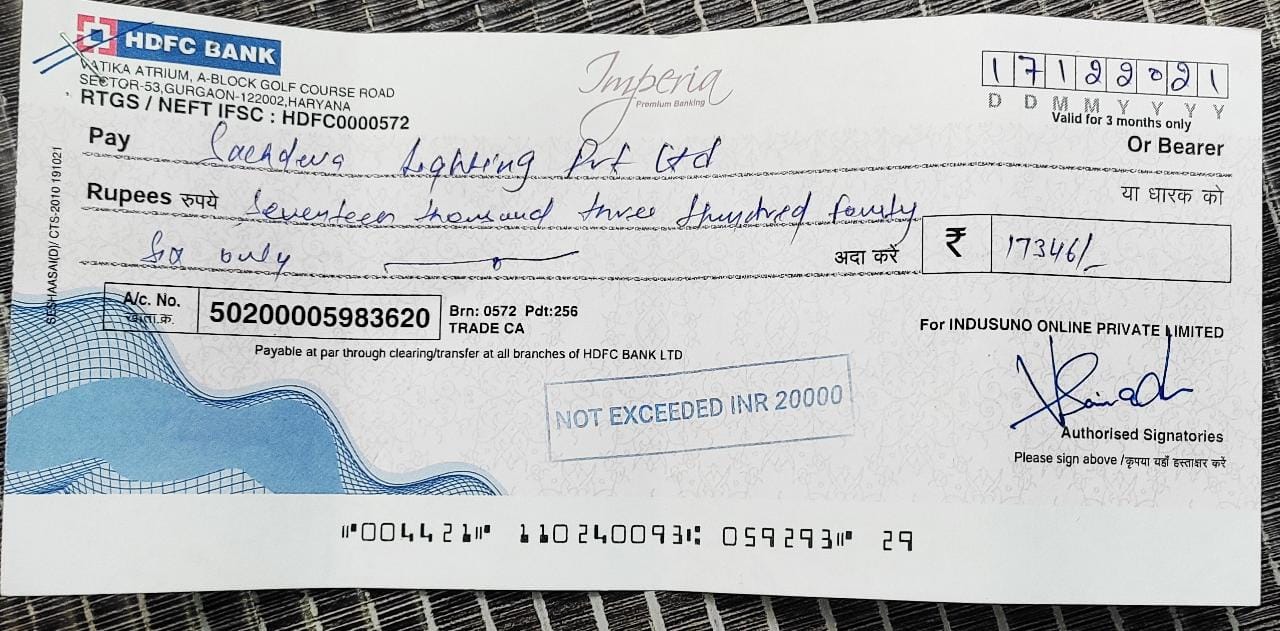 HDFC BANK
VATIKA ATRIUM, A-BLOCK GOLF COURSE ROAD
SECTOR-53,GURGAON-122002,HARYANA
RTGS / NEFT IFSC : HDFC0000572
Imperia
Premium Banking
17122021
D D M M Y Y Y Y
Valid for 3 months only
Pay Sachdeva Lighting Pvt Ltd Or Bearer
या धारक को
Rupees रुपये Seventeen thousand three Hundred fourty
Six only अदा करें ₹ 17346/-
SESHAASAI(D)/ CTS-2010 191021
A/c. No. 50200005983620 Brn: 0572 Pdt:256
खाता.क्र. TRADE CA
Payable at par through clearing/transfer at all branches of HDFC BANK LTD
For INDUSUNO ONLINE PRIVATE LIMITED
NOT EXCEEDED INR 20000
Authorised Signatories
Please sign above /कृपया यहाँ हस्ताक्षर करें
⑈004421⑈ 110240093⑆ 059293⑈ 29